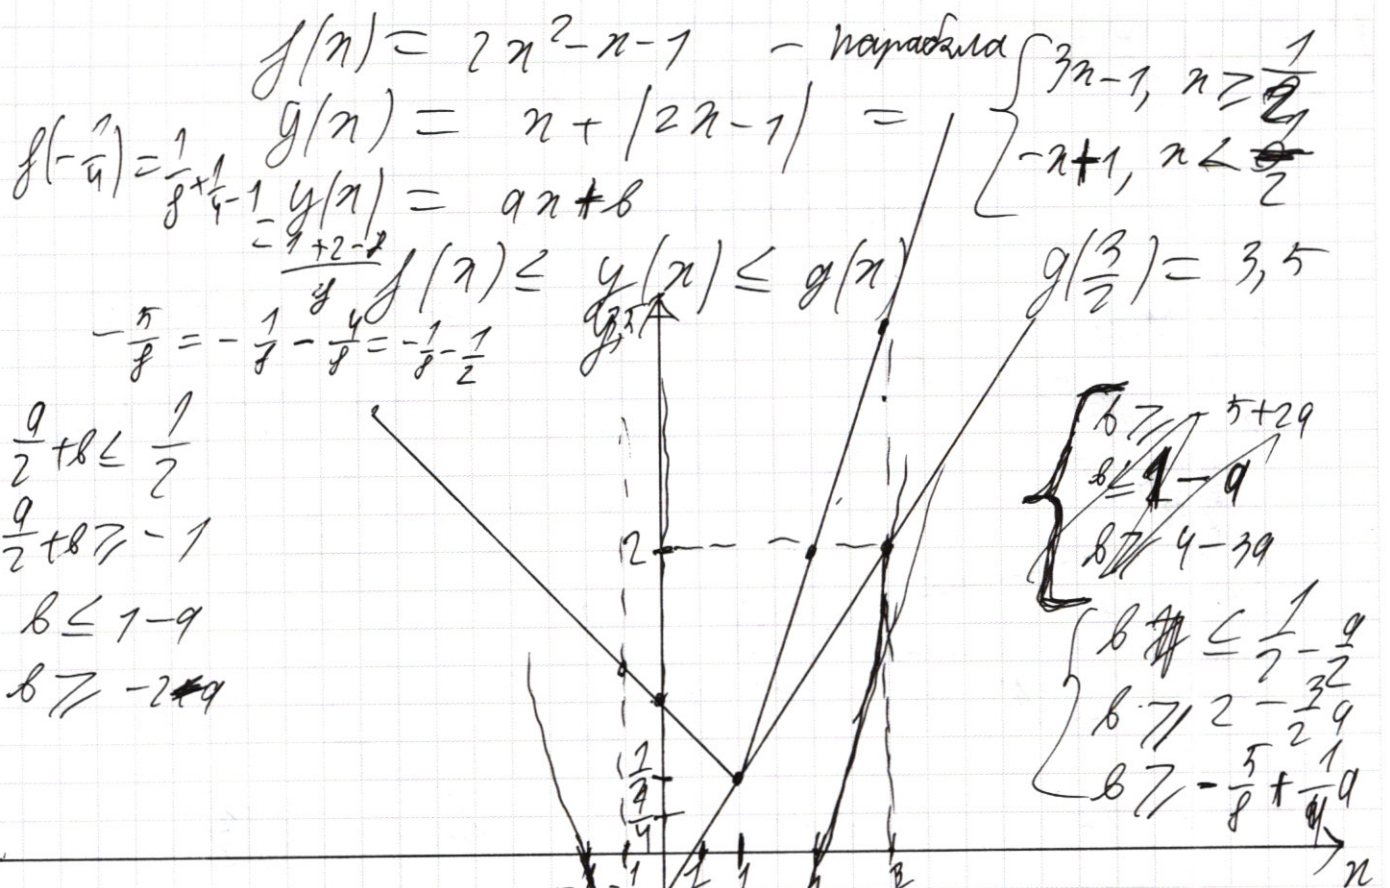 f(x) = 2x² - x - 1 - парабола
g(x) = x + |2x - 1| = { 3x - 1, x ≥ 1/2
-x + 1, x < 1/2
f(-1/4) = 1/8 + 1/4 - 1
y(x) = ax + b
f(x) ≤ y(x) ≤ g(x)
g(3/2) = 3,5
-5/8 = -1/8 - 4/8 = -1/8 - 1/2
a/2 + b ≤ 1/2
a/2 + b ≥ -1
b ≤ 1 - a
b ≥ -2 - a
b ≥ -5 + 2a
b ≤ 1 - a
b ≥ 4 - 3a
b ≤ 1/2 - a/2
b ≥ 2 - 3/2 a
b ≥ -5/8 + 1/4 a
2
x